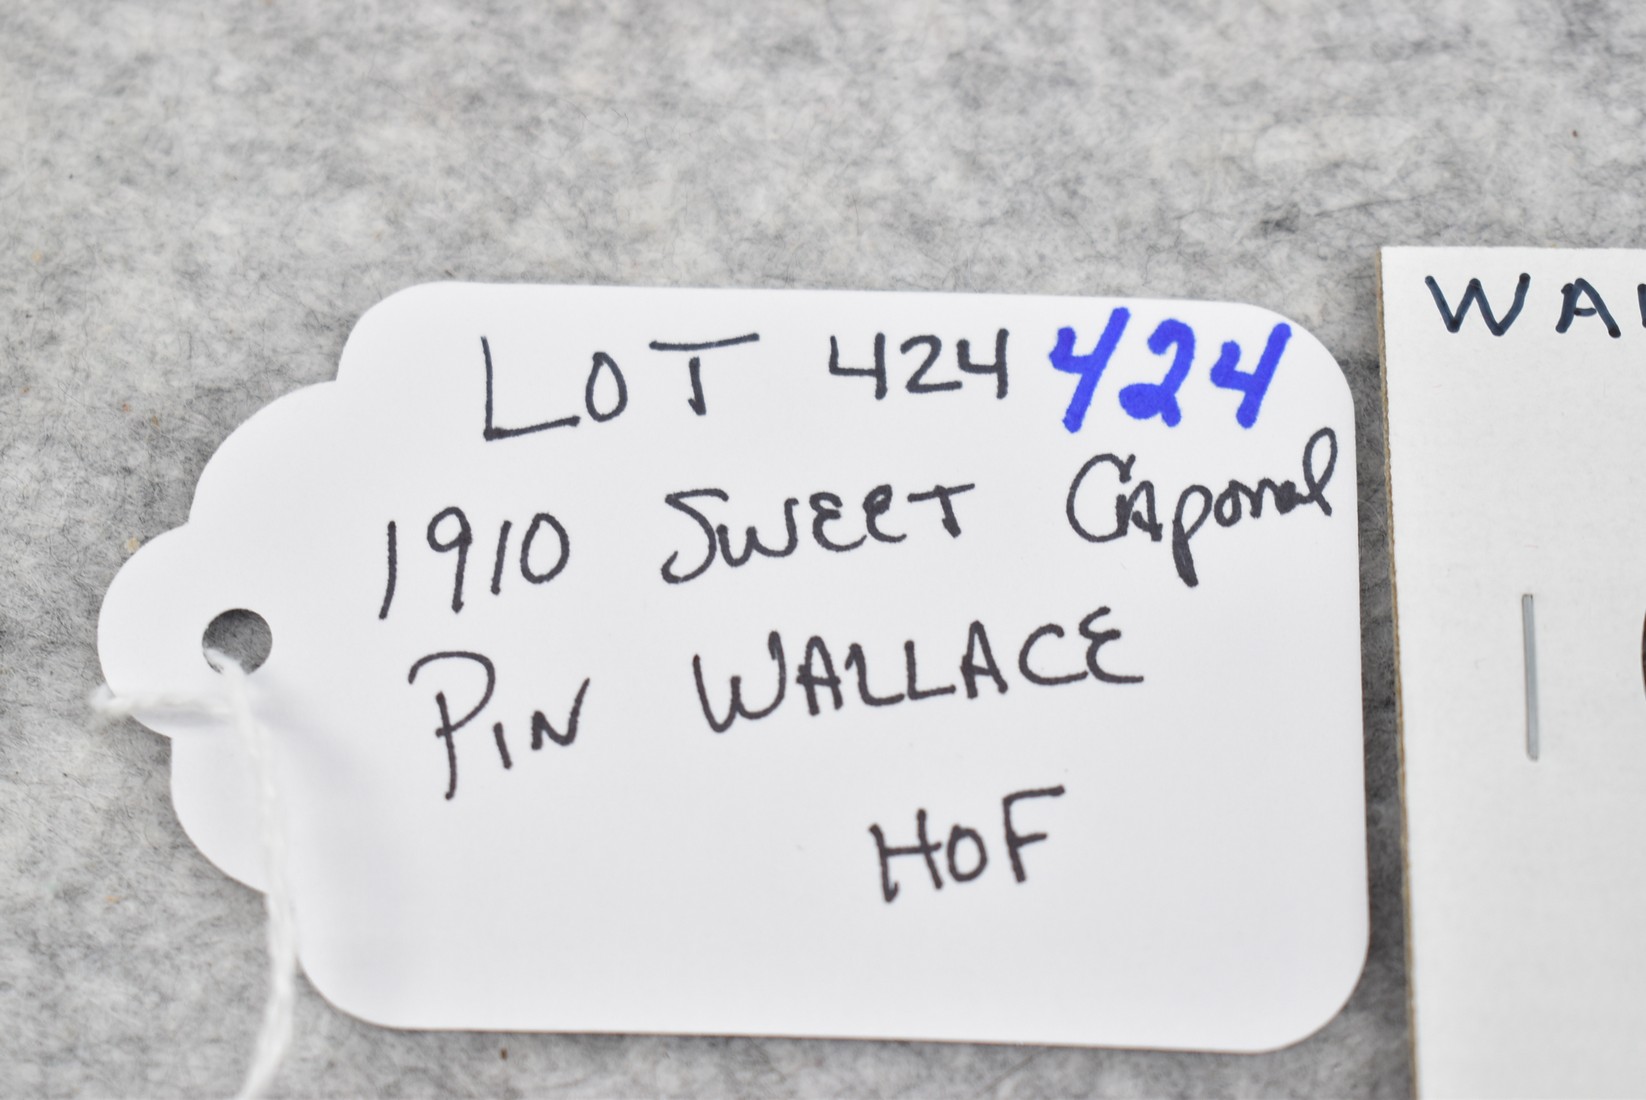 LOT 424 424
1910 SWEET CAporal
PIN WALLACE
HOF
WAL